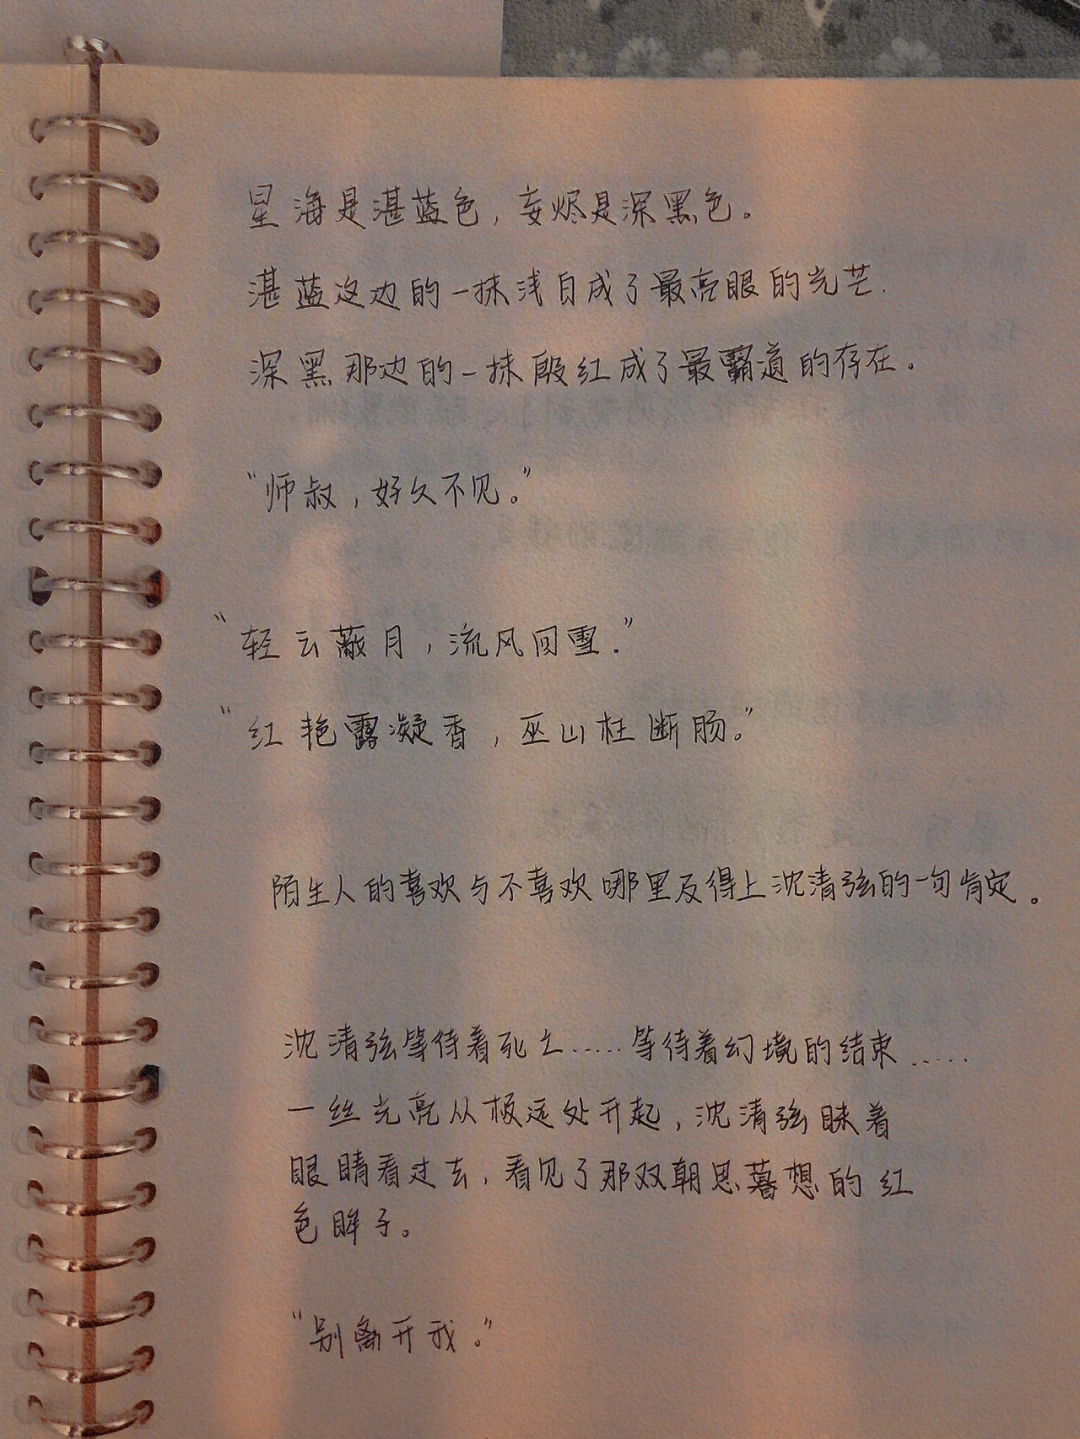 星海是湛蓝色，妄烬是深黑色。
湛蓝这边的一抹浅白成了最亮眼的光芒.
深黑那边的一抹殷红成了最霸道的存在。
“师叔，好久不见。”
“轻云蔽月，流风回雪.”
“红艳露凝香，巫山枉断肠。”
陌生人的喜欢与不喜欢哪里及得上沈清弦的一句肯定。
沈清弦等待着死亡.....等待着幻境的结束.....
一丝光亮从极远处开起，沈清弦眯着
眼睛看过去，看见了那双朝思暮想的红
色眸子。
“别离开我。”